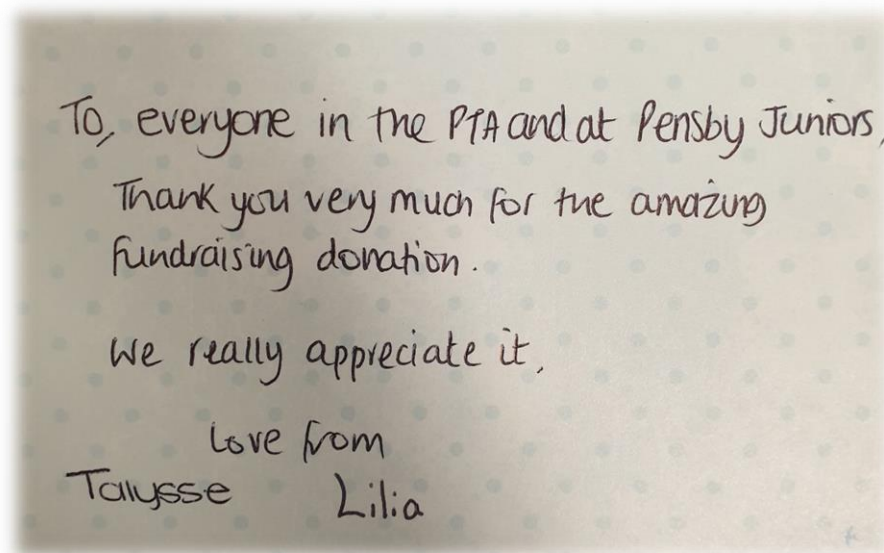 To, everyone in the PTA and at Pensby Juniors,
Thank you very much for the amazing
fundraising donation.
We really appreciate it,
Love from
Talysse Lilia